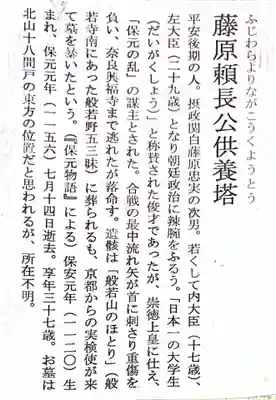 ふじわらよりながこうくようとう
藤原頼長公供養塔
平安後期の人。摂政関白藤原忠実の次男。若くして内大臣（十七歳）、
左大臣（二十九歳）となり朝廷政治に辣腕をふるう。「日本一の大学生
（だいがくしょう）」と称賛された俊才であったが、崇徳上皇に仕え、
「保元の乱」の謀主とされた。合戦の最中流れ矢が首に刺さり重傷を
負い、奈良興福寺まで逃れたが落命す。遺骸は「般若山のほとり」（般
若寺南にあった般若野五三昧）に葬られるも、京都からの実検使が来
て墓を暴いたという。（『保元物語』による）保安元年（一一二〇）生
まれ、保元元年（一一五六）七月十四日逝去。享年三十七歳。お墓は
北山十八間戸の東方の位置だと思われるが、所在不明。